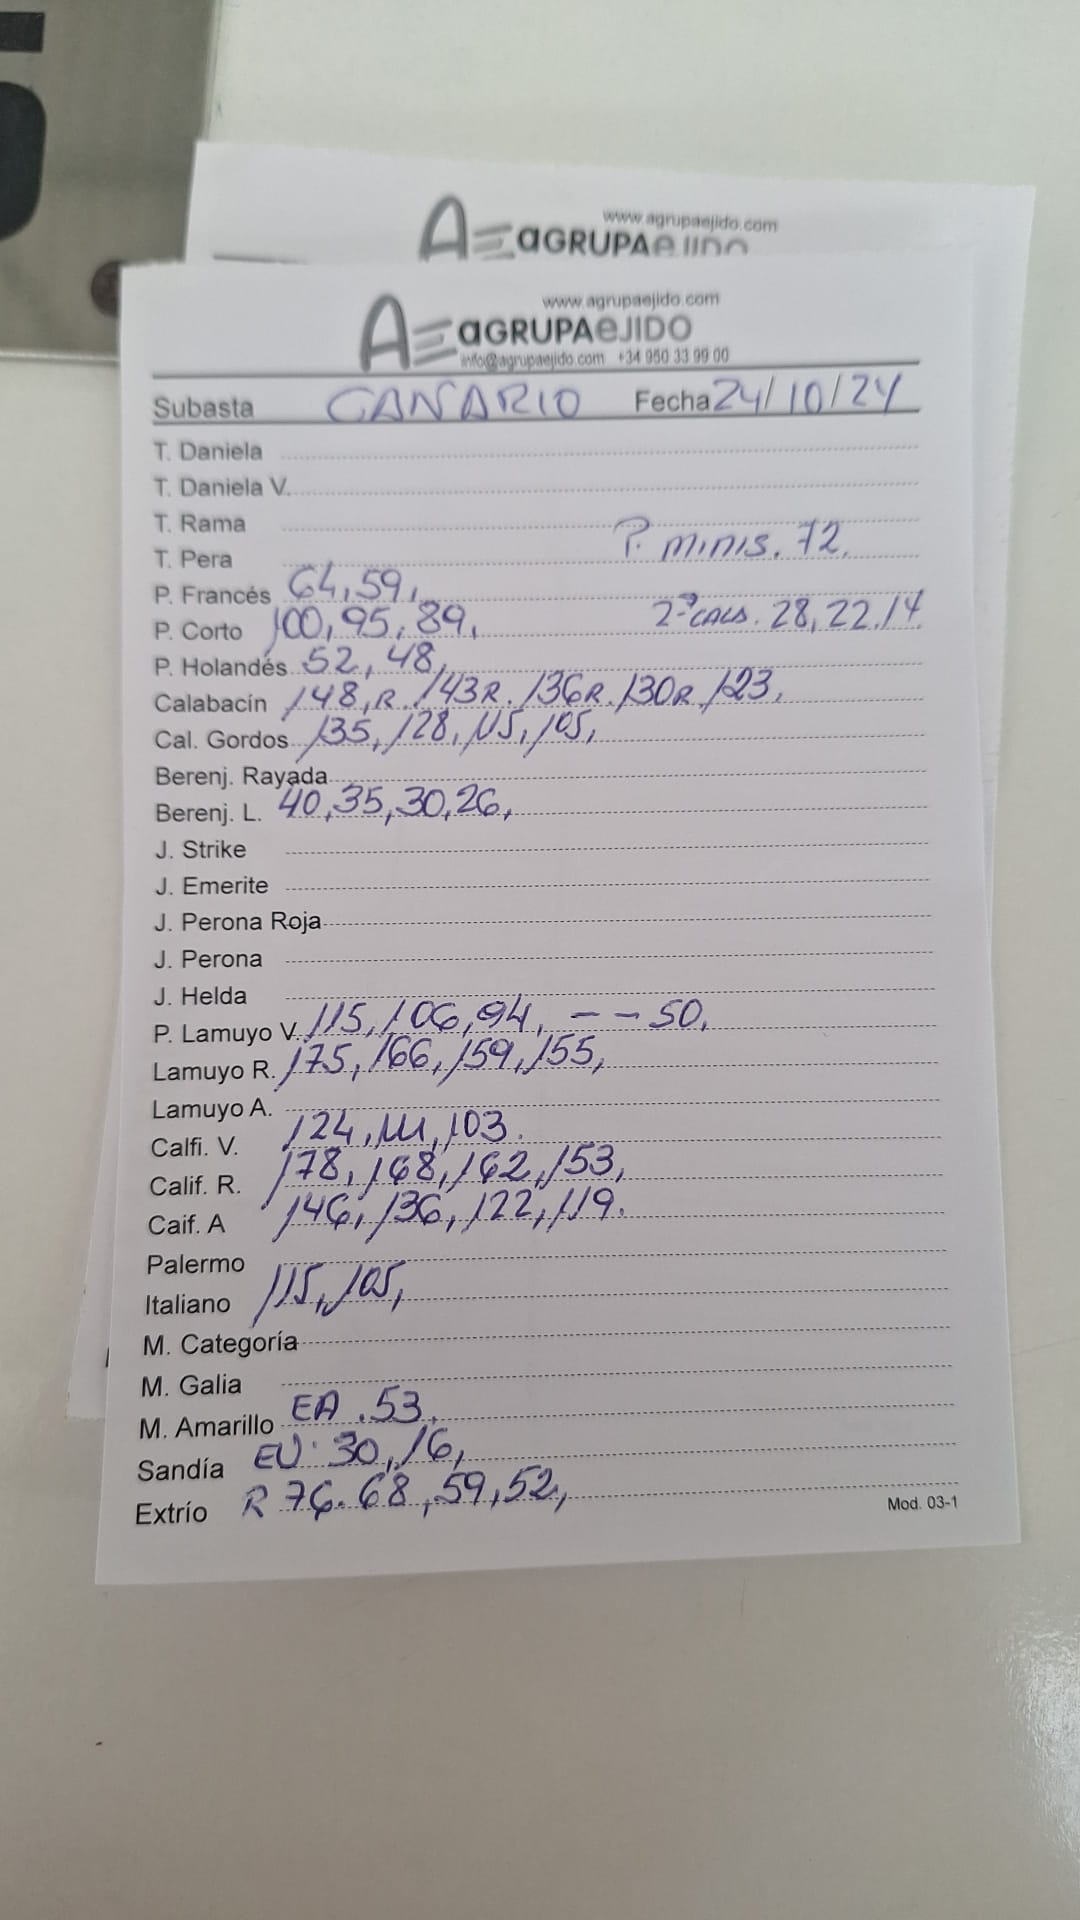 www.agrupaejido.com
AGRUPAEJIDO
www.agrupaejido.com
AGRUPAEJIDO
info@agrupaejido.com +34 950 33 99 00
Subasta CAÑARIO Fecha 24/10/24
T. Daniela
T. Daniela V.
T. Rama
P. minis. 72.
T. Pera
P. Francés 64, 59,
P. Corto 100, 95, 89, 2ªs CALS. 28, 22, 14
P. Holandés 52, 48,
Calabacín 148, R. 143 R. 136 R. 130 R. 123,
Cal. Gordos 135, 128, 115, 105,
Berenj. Rayada
Berenj. L. 40, 35, 30, 26,
J. Strike
J. Emerite
J. Perona Roja
J. Perona
J. Helda
P. Lamuyo V. 115, 106, 94, - - 50,
Lamuyo R. 175, 166, 159, 155,
Lamuyo A.
Calfi. V. 124, 111, 103.
Calif. R. 178, 168, 162, 153,
Caif. A 146, 136, 122, 119.
Palermo
Italiano 115, 105,
M. Categoría
M. Galia
M. Amarillo EA . 53,
Sandía EU. 30, 16,
Extrío R 76. 68, 59, 52,
Mod. 03-1